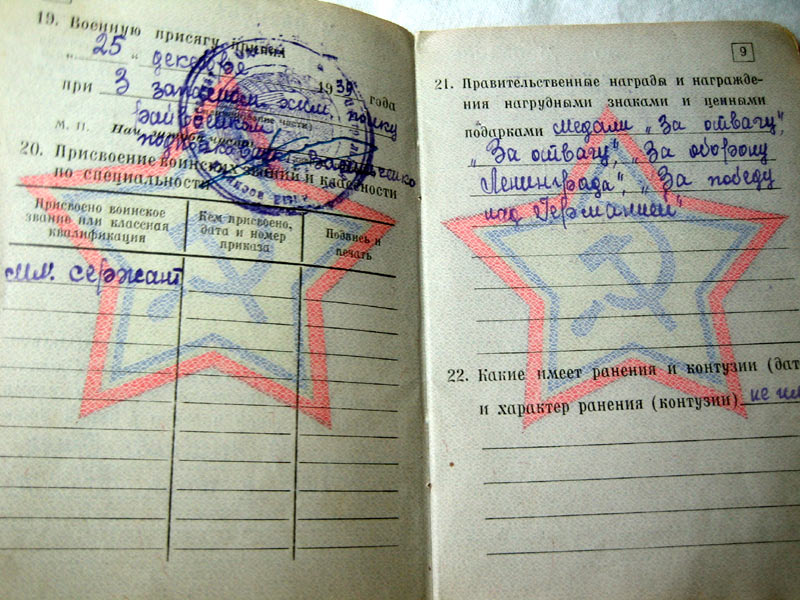 19. Военную присягу принял
„25“ декабря 1939 года
при 3 запасном хим. полку
М. П.
20. Присвоение воинских званий и классности
по специальности
Присвоено воинское
звание или классная
квалификация
Кем присвоено,
дата и номер
приказа
Подпись и
печать
мл. сержант
9
21. Правительственные награды и награжде-
ния нагрудными знаками и ценными
подарками медали „За отвагу“,
„За отвагу“, „За оборону
Ленинграда“, „За победу
над Германией“
22. Какие имеет ранения и контузии (дат
и характер ранения (контузии) не им